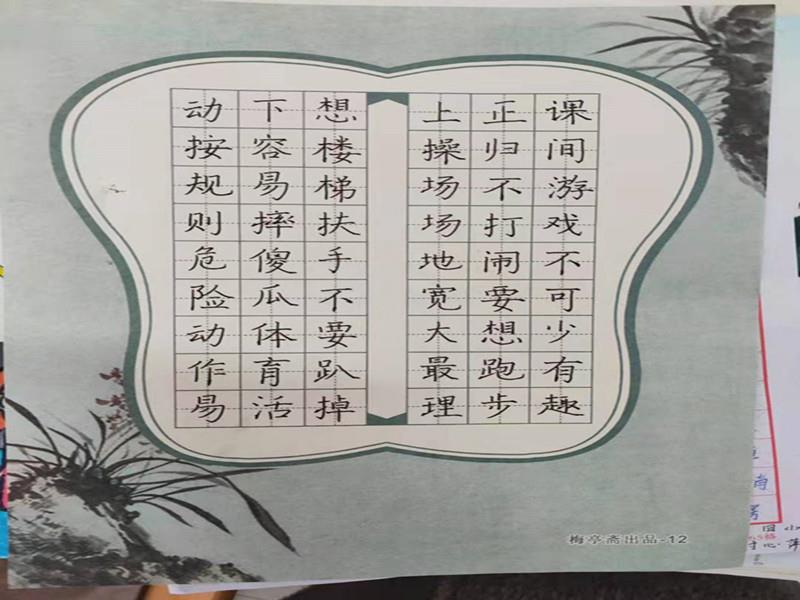 课间游戏不可少有趣
正归不打闹要想跑步
上操场场地宽大最理
想楼梯扶手不要趴掉
下容易摔傻瓜体育活
动按规则危险动作易
梅亭斋出品-12